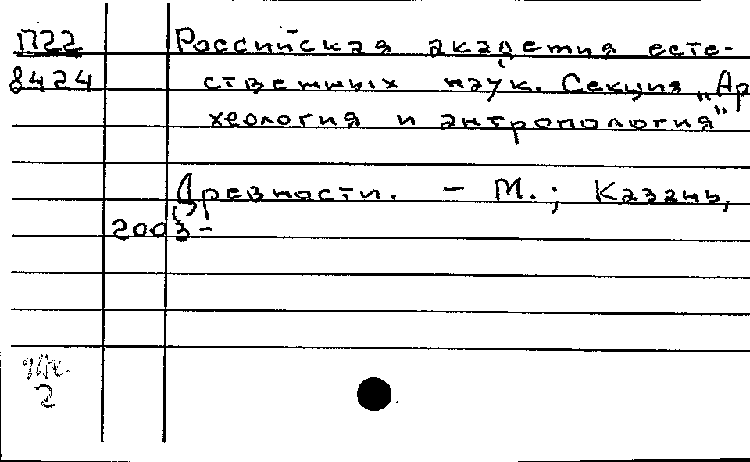 П22 Российская академия есте-
8424 ственных наук. Секция „Ар
хеология и антропология"
Древности. - М.; Казань,
2003-
2